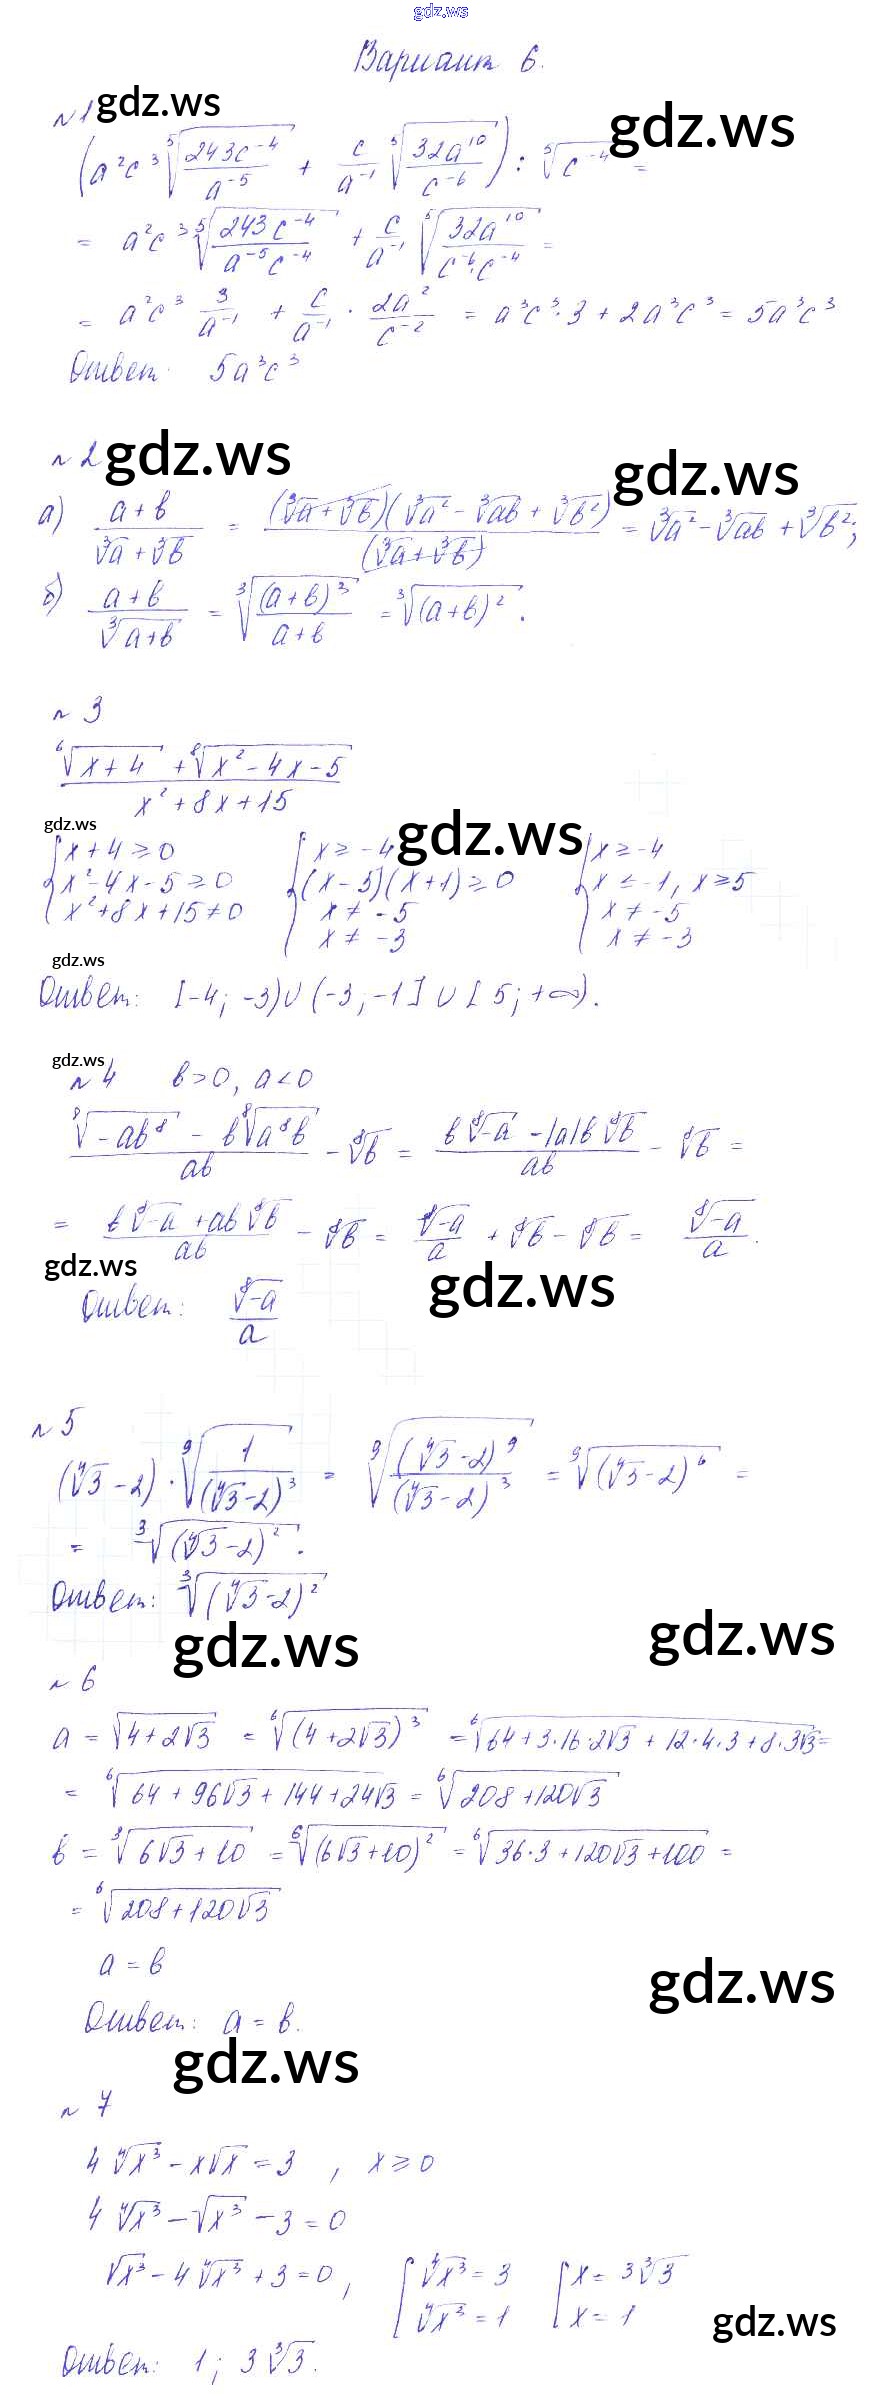 gdz.ws
Вариант 6.
№1 gdz.ws gdz.ws
(a²c³ ⁵√(243c⁻⁴/a⁻⁵) + c/a⁻¹ ⁵√(32a¹⁰/c⁻⁶)) : ⁵√(c⁻⁴) =
= a²c³ ⁵√(243c⁻⁴/(a⁻⁵c⁻⁴)) + c/a⁻¹ ⁵√(32a¹⁰/(c⁻⁶·c⁻⁴)) =
= a²c³ 3/a⁻¹ + c/a⁻¹ · 2a²/c⁻² = a³c³·3 + 2a³c³ = 5a³c³
Ответ: 5a³c³
№2 gdz.ws gdz.ws
а) (a+b)/(³√a + ³√b) = (³√a + ³√b)(³√a² − ³√ab + ³√b²)/(³√a + ³√b) = ³√a² − ³√ab + ³√b²;
б) (a+b)/³√(a+b) = ³√((a+b)³/(a+b)) = ³√(a+b)².
№3
(⁶√(x+4) + ⁸√(x²−4x−5))/(x²+8x+15)
gdz.ws gdz.ws
{x+4≥0 {x≥−4 {x≥−4
x²−4x−5≥0 (x−5)(x+1)≥0 x≤−1, x≥5
x²+8x+15≠0 x≠−5 x≠−5
x≠−3 x≠−3
gdz.ws
Ответ: [−4; −3)∪(−3; −1]∪[5; +∞).
gdz.ws
№4 b>0, a<0
(⁸√(−ab⁸) − b⁸√(a⁸b))/ab − ⁸√b = (b⁸√−a − |a|b⁸√b)/ab − ⁸√b =
= (b⁸√−a + ab⁸√b)/ab − ⁸√b = ⁸√−a/a + ⁸√b − ⁸√b = ⁸√−a/a.
gdz.ws gdz.ws
Ответ: ⁸√−a/a
№5
(⁴√3−2)·⁹√(1/(⁴√3−2)³) = ⁹√((⁴√3−2)⁹/(⁴√3−2)³) = ⁹√(⁴√3−2)⁶ =
= ³√(⁴√3−2)².
Ответ: ³√(⁴√3−2)²
gdz.ws gdz.ws
№6
a = √(4+2√3) = ⁶√(4+2√3)³ = ⁶√(64+3·16·2√3 + 12·4·3+8·3√3) =
= ⁶√(64+96√3+144+24√3) = ⁶√(208+120√3)
b = ³√(6√3+10) = ⁶√(6√3+10)² = ⁶√(36·3+120√3+100) =
= ⁶√(208+120√3)
a = b
gdz.ws
Ответ: a = b.
gdz.ws
№7
4⁴√x³ − x√x = 3, x≥0
4⁴√x³ − √x³ − 3 = 0
√x³ − 4⁴√x³ + 3 = 0, [⁴√x³ = 3 [x = 3³√3
⁴√x³ = 1 x = 1
gdz.ws
Ответ: 1; 3³√3.